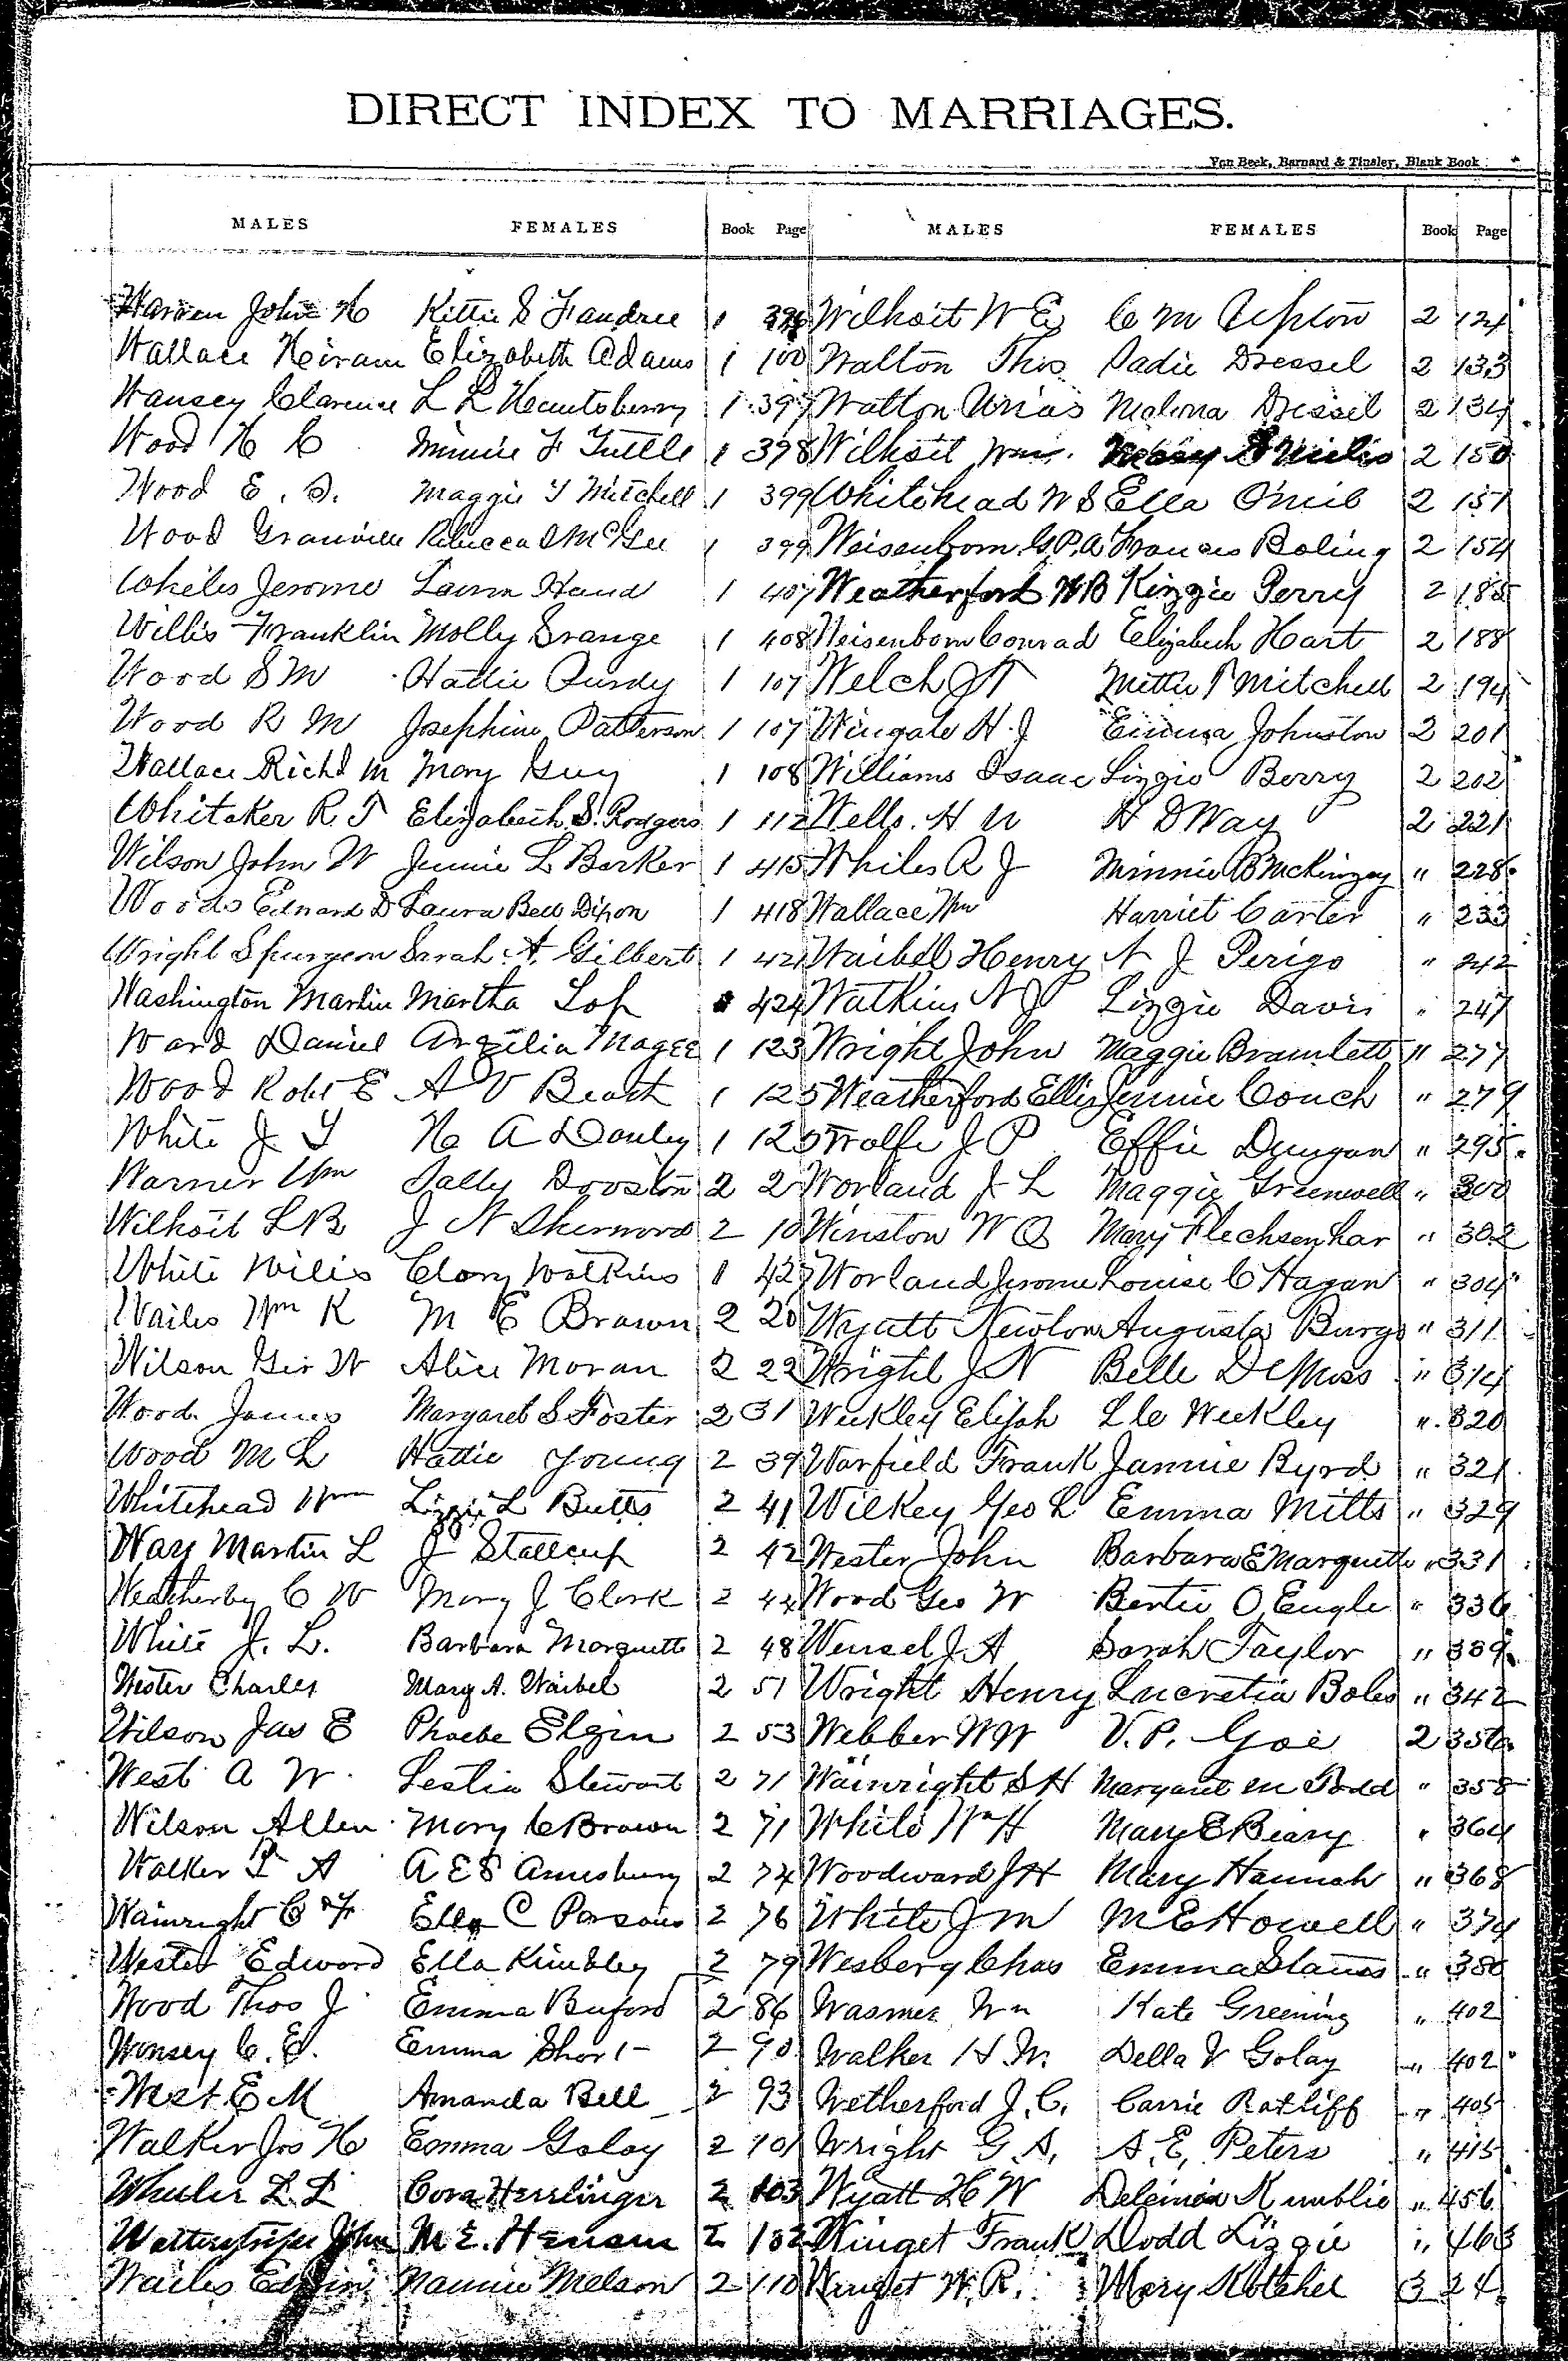 DIRECT INDEX TO MARRIAGES.
Von Beek, Barnard & Tinsley, Blank Book
MALES FEMALES Book Page MALES FEMALES Book Page
Warren John H Kittie S Fandree 1 Wilhoit W E C M Upton 2 124
Wallace Hiram Elizabeth Adams 1 100 Walton Thos Sadie Dressel 2 133
Wansey Clarence L L Hentsberry 1 397 Walton Urias Malona Dressel 2 134
Wood H C Minnie F Tuttle 1 398 Wilhoit Wm 2 150
Wood E. S. Maggie Y Mitchell 1 399 Whitehead W S Ella O'neil 2 151
Wood Granville Rebecca S McGee 1 399 Weisenborn G.P.A Frances Boling 2 154
Whiles Jerome Laura Hand 1 407 Weatherford W B Kizzie Perry 2 185
Willis Franklin Molly Srange 1 408 Weisenborn Conrad Elizabeth Hart 2 188
Wood S M Hattie Purdy 1 107 Welch J T Mittie T Mitchell 2 194
Wood R M Josephine Patterson 1 107 Wingate H. J Emma Johnston 2 201
Wallace Richd M Mary Guy 1 108 Williams Isaac Lizzie Berry 2 202
Whitaker R. T Elizabeth S. Rodgers 1 112 Wells. H N H D Way 2 221
Wilson John W Jennie L Barker 1 415 Whiles R J Minnie B McKinzey " 228
Woods Edward D Laura Bell Dixon 1 418 Wallace Wm Harriet Carter " 233
Wright Spurgeon Sarah A. Gilbert 1 421 Waibel Henry N J Perigo " 242
Washington Martin Martha Lop 424 Watkins N J Lizzie Davis " 247
Ward Daniel Argelia Magee 1 123 Wright John Maggie Bramlett " 277
Wood Robt E A V Beach 1 125 Weatherford Ellis Jennie Couch " 279
White J Y N A Danley 1 125 Wolfe J P Effie Dungan " 295
Warner Wm Sally Dooston 2 2 Worland J L Maggie Greenwell " 300
Wilhoit L B J N Sherwood 2 10 Winston W O Mary Flechsenhar " 302
White Willis Clary Watkins 1 427 Worland Jerome Louise C Hagan " 304
Wailes Wm K M E Brown 2 20 Wyatt Newton Augusta Burgs " 311
Wilson Geo W Alice Moran 2 22 Wright J N Belle DeMoss " 314
Wood James Margaret S Foster 2 31 Weekley Elijah L C Weekley " 320
Wood M L Hattie Young 2 39 Warfield Frank Jannie Byrd " 321
Whitehead Wm Lizzie L Butts 2 41 Wilkey Geo L Emma Mitts " 329
Way Martin L J Stallcup 2 42 Wester John Barbara E Marquette " 331
Weatherby C W Mary J Clark 2 44 Wood Geo W Bertie O Engle " 336
White J. L. Barbara Marquette 2 48 Wensel J. A Sarah Taylor " 339
Wester Charles Mary A. Waibel 2 51 Wright Henry Lucretia Boles " 342
Wilson Jas E Phoebe Elgin 2 53 Webber W W V. P. Goe 2 356
West A W Lestia Stewart 2 71 Wainright S H Margaret M Todd " 358
Wilson Allen Mary C Brown 2 71 White Wm H Mary E Beary " 364
Walker P A A E S Amesbury 2 74 Woodward J H Mary Hannah " 368
Wainright C F Ella C Parsons 2 76 White J M M E Howell " 374
Wester Edward Ella Kimbley 2 79 Wesberg Chas Emma Stauss " 380
Wood Thos J Emma Buford 2 86 Wasmer Wm Kate Greening " 402
Wonsey C. E. Emma Short 2 90 Walker H M Della V Golay " 402
West E M Amanda Bell 2 93 Wetherford J. C. Carrie Ratliff " 405
Walker Jos H Emma Golay 2 101 Wright G A. A. E, Peters " 415
Wheeler L L Cora Herrlinger 2 103 Wyatt H W " 456
John M E. Hensen 2 132 Winget Frank Dodd Lizzie " 463
Wailes Edwin Nannie Melson 2 110 Winget W. R. Mary Kotchel 3 24